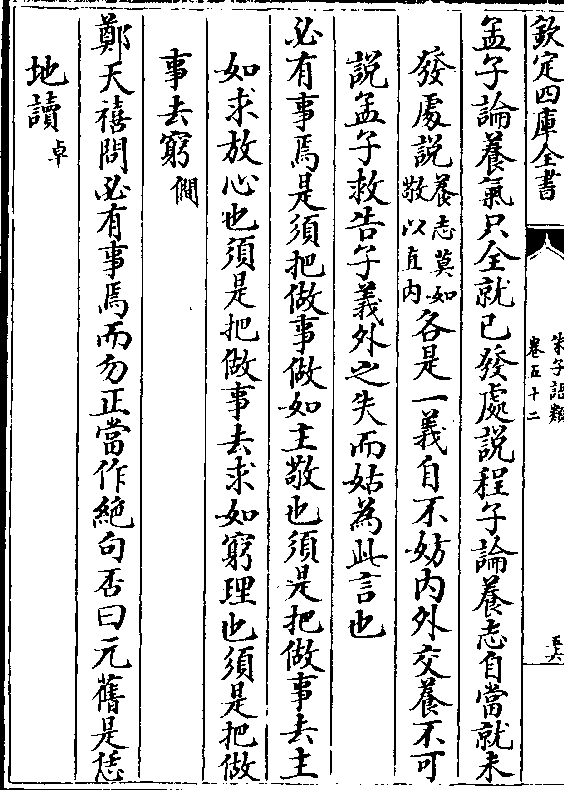 欽定四庫全書
朱子語類
卷五十二
五六
孟子論養氣只全就已發處說程子論養志自當就未
發處說養志莫如敬以直内各是一義自不妨内外交養不可
說孟子救告子義外之失而姑為此言也
必有事焉是須把做事做如主敬也須是把做事去主
如求放心也須是把做事去求如窮理也須是把做
事去窮僩
鄭天禧問必有事焉而勿正當作絶句否曰元舊是恁
地讀卓